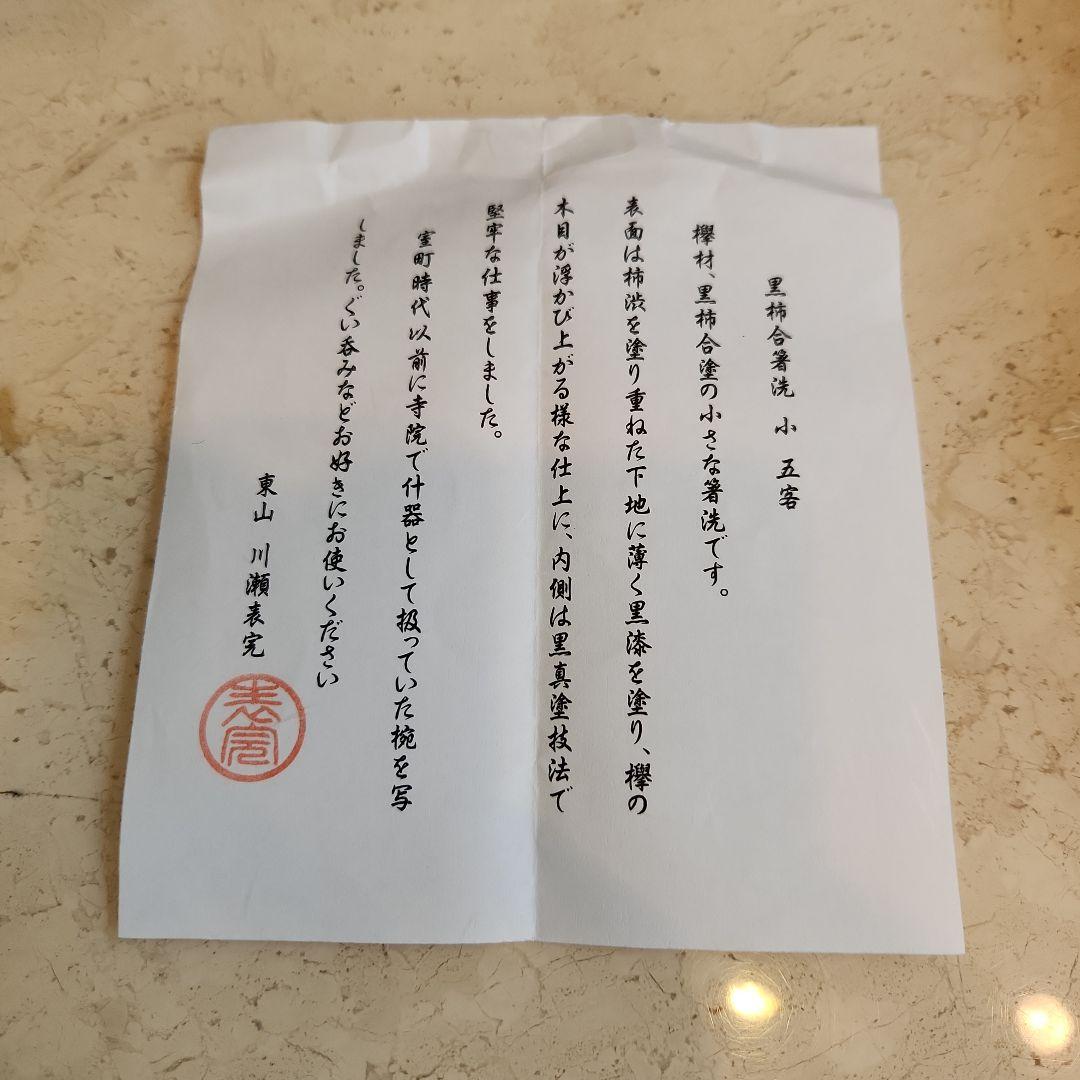 黒柿合箸洗 小 五客
欅材、黒柿合塗の小さな箸洗です。
表面は柿渋を塗り重ねた下地に薄く黒漆を塗り、欅の
木目が浮かび上がる様な仕上に、内側は黒真塗技法で
堅牢な仕事をしました。
室町時代以前に寺院で什器として扱っていた椀を写
しました。ぐい呑みなどお好きにお使いください
東山 川瀬表完
表完